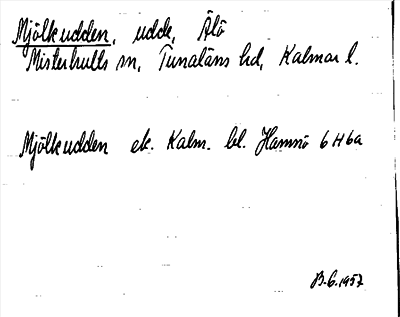 Mjölkudden, udde, Älö
Misterhults sn, Tunaläns hd, Kalmar l.
Mjölkudden ek. Kalm. bl. Hamnö 6H6a
B.G. 1957